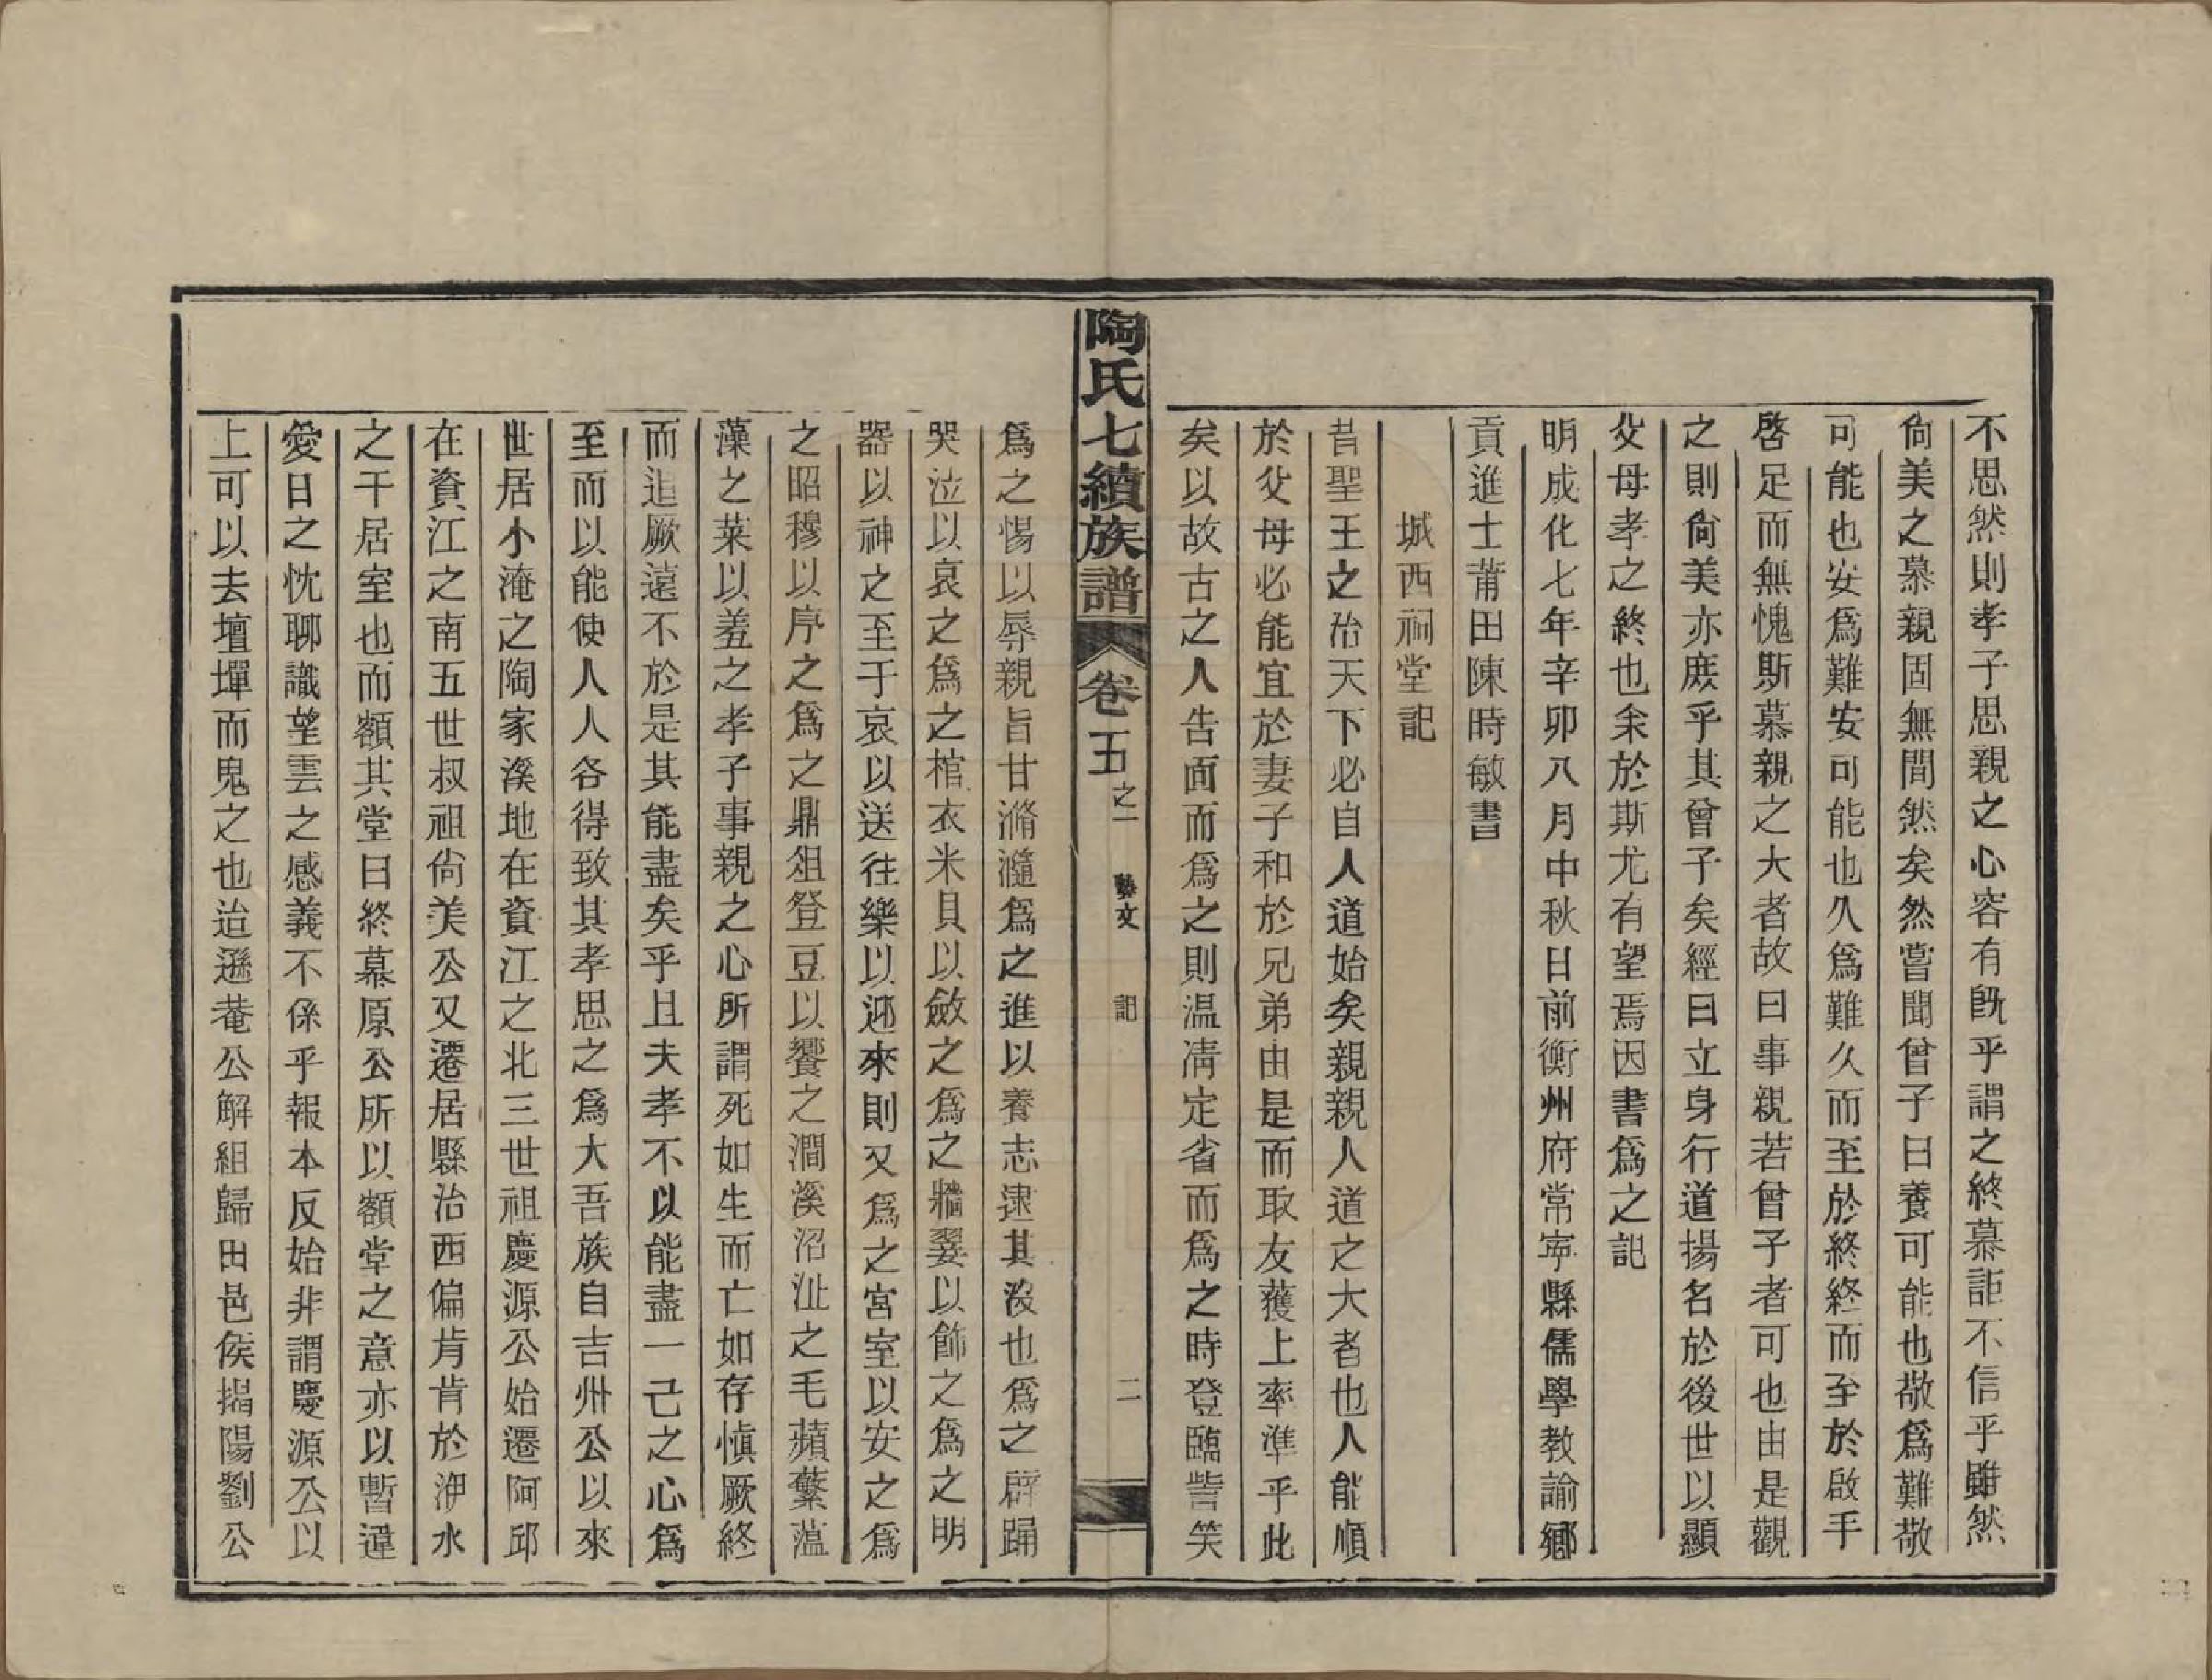 不思然則孝子思親之心容有旣乎謂之終慕詎不信乎雖然
尙美之慕親固無間然矣然嘗聞曾子曰養可能也敬爲難敬
可能也安爲難安可能也久爲難久而至於終終而至於啟手
啓足而無愧斯慕親之大者故曰事親若曾子者可也由是觀
之則尙美亦庶乎其曾子矣經曰立身行道揚名於後世以顯
父母孝之終也余於斯尤有望焉因書爲之記
明成化七年辛卯八月中秋日前衡州府常寧縣儒學教諭鄉
貢進士莆田陳時敏書
城西祠堂記
昔聖王之治天下必自人道始矣親親人道之大者也人能順
於父母必能宜於妻子和於兄弟由是而取友獲上率準乎此
矣以故古之人告面而爲之則温凊定省而爲之時登臨訾笑
陶氏七續族譜 卷五之一 藝文 記 二
爲之惕以辱親旨甘滫瀡爲之進以養志逮其沒也爲之辟踊
哭泣以哀之爲之棺衣米貝以斂之爲之牆翣以飾之爲之明
器以神之至于哀以送往樂以迎來則又爲之宮室以安之爲
之昭穆以序之爲之鼎俎豋豆以饗之澗溪沼沚之毛蘋蘩薀
藻之菜以羞之孝子事親之心所謂死如生而亡如存愼厥終
而追厥遠不於是其能盡矣乎且夫孝不以能盡一己之心爲
至而以能使人人各得致其孝思之爲大吾族自吉州公以來
世居小淹之陶家溪地在資江之北三世祖慶源公始遷阿邱
在資江之南五世叔祖尙美公又遷居縣治西偏肯肯於洢水
之干居室也而額其堂曰終慕原公所以額堂之意亦以暫違
愛日之忱聊識望雲之感義不係乎報本反始非謂慶源公以
上可以去壇墠而鬼之也迨遜菴公解組歸田邑侯揭陽劉公